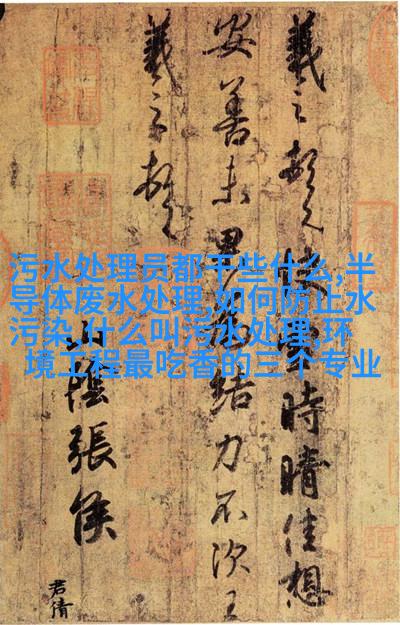 污水处理员都干些什么,半
导体废水处理,如何防止水
污染,什么叫污水处理,环
境工程最吃香的三个专业
羲之頓首快雪時晴佳想
安善未果為結力不次王
羲之頓首
山陰張侯
君倩